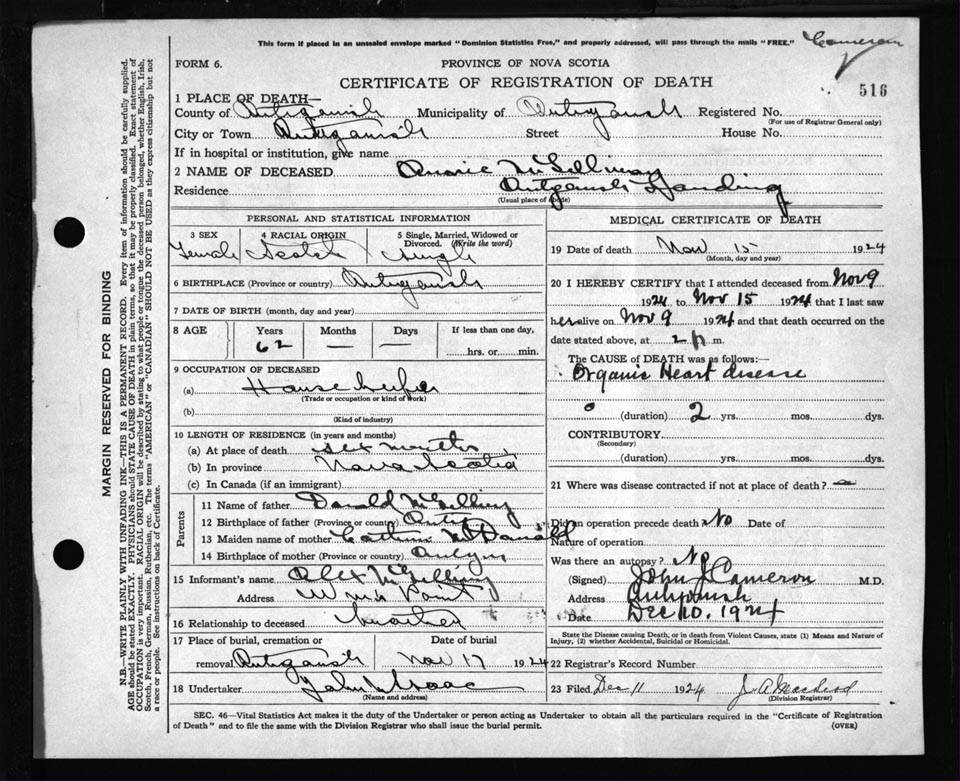 This form if placed in an unsealed envelope marked "Dominion Statistics Free," and properly addressed, will pass through the mails "FREE."
Cameron
FORM 6.
PROVINCE OF NOVA SCOTIA
CERTIFICATE OF REGISTRATION OF DEATH
516
1 PLACE OF DEATH—
County of Antigonish Municipality of Antigonish Registered No.
(For use of Registrar General only)
City or Town Antigonish Street House No.
If in hospital or institution, give name
2 NAME OF DECEASED Annie McGillivray
Residence Antigonish Landing
(Usual place of abode)
PERSONAL AND STATISTICAL INFORMATION
3 SEX 4 RACIAL ORIGIN 5 Single, Married, Widowed or Divorced. (Write the word)
Female Scotch Single
6 BIRTHPLACE (Province or country) Antigonish
7 DATE OF BIRTH (month, day and year)
8 AGE Years Months Days If less than one day,
62 — — hrs. or min.
9 OCCUPATION OF DECEASED
(a) House keeper
(Trade or occupation or kind of work)
(b)
(Kind of industry)
10 LENGTH OF RESIDENCE (in years and months)
(a) At place of death six months
(b) In province Nova Scotia
(c) In Canada (if an immigrant)
Parents
11 Name of father Donald McGillivray
12 Birthplace of father (Province or country) Antig
13 Maiden name of mother McDonald
14 Birthplace of mother (Province or country)
15 Informant's name Alex McGillivray
Address Point
16 Relationship to deceased brother
17 Place of burial, cremation or removal Antigonish Date of burial Nov 17 1924
18 Undertaker John Isaac
(Name and address)
MEDICAL CERTIFICATE OF DEATH
19 Date of death Nov 15 1924
(Month, day and year)
20 I HEREBY CERTIFY that I attended deceased from Nov 9
1924 to Nov 15 1924 that I last saw
her alive on Nov 9 1924 and that death occurred on the
date stated above, at 2 p m.
The CAUSE of DEATH was as follows:—
Organic Heart disease
(duration) 2 yrs. mos. dys.
CONTRIBUTORY
(Secondary)
(duration) yrs. mos. dys.
21 Where was disease contracted if not at place of death?
Did an operation precede death? No Date of
Nature of operation
Was there an autopsy? No
(Signed) John J Cameron M.D.
Address Antigonish
Date Dec 10, 1924
State the Disease causing Death, or in death from Violent Causes, state (1) Means and Nature of
Injury, (2) whether Accidental, Suicidal or Homicidal.
22 Registrar's Record Number
23 Filed Dec 11 1924 J. A Macleod
(Division Registrar)
SEC. 46—Vital Statistics Act makes it the duty of the Undertaker or person acting as Undertaker to obtain all the particulars required in the "Certificate of Registration
of Death" and to file the same with the Division Registrar who shall issue the burial permit. (OVER)
MARGIN RESERVED FOR BINDING
N.B.—WRITE PLAINLY WITH UNFADING INK—THIS IS A PERMANENT RECORD. Every item of information should be carefully supplied.
AGE should be stated EXACTLY. PHYSICIANS should STATE CAUSE OF DEATH in plain terms, so that it may be properly classified. Exact statement of
OCCUPATION is very important. RACIAL ORIGIN will be described by stating to what people or tongue the deceased person belonged, whether English, Irish,
Scotch, French, German, Russian, Ruthenian, etc. The terms "AMERICAN" or "CANADIAN" SHOULD NOT BE USED as they express citizenship but not
a race or people. See instructions on back of Certificate.